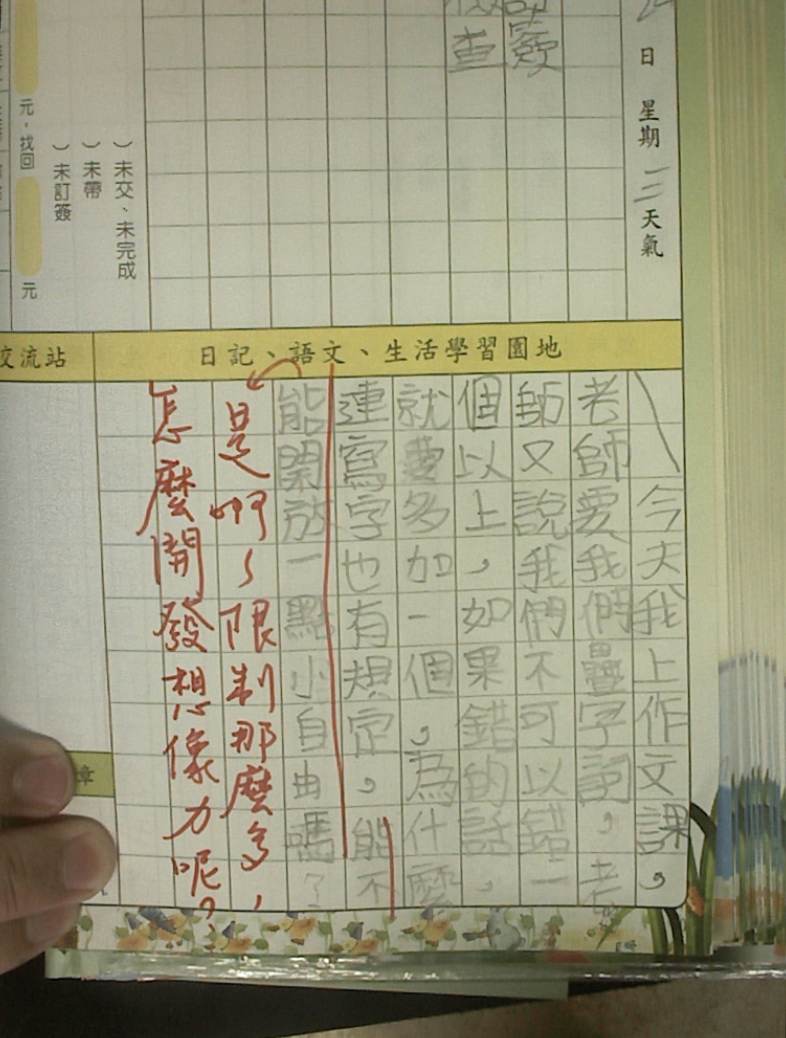 日 星期三 天氣
查
)未交、未完成
)未帶
)未訂簽
元，找回 元
日記、語文、生活學習園地
交流站
今天我上作文課，
老師要我們疊字詞，老
師又說我們不可以錯一
個以上，如果錯的話，
就要多加一個，為什麼
連寫字也有規定，能不
能開放一點小自由嗎？
是啊~限制那麼多，
怎麼開發想像力呢？
章